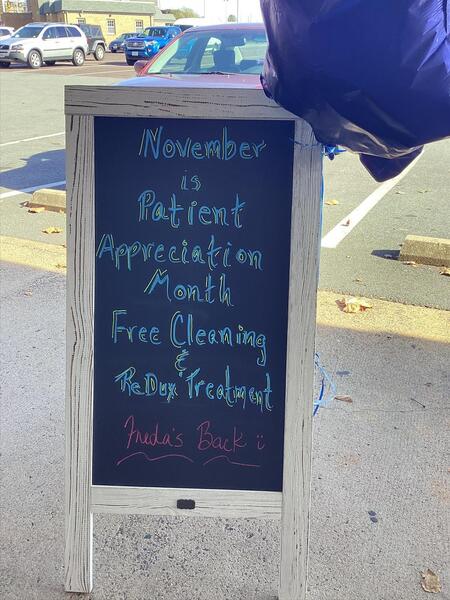 November
is
Patient
Appreciation
Month
Free Cleaning
&
ReDux Treatment
Freda's Back :)